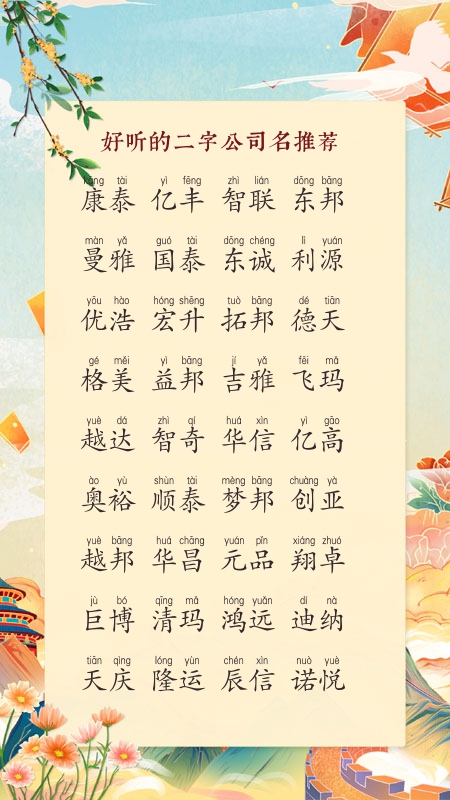 好听的二字公司名推荐
kāng tài yì fēng zhì lián dōng bāng
康泰 亿丰 智联 东邦
màn yǎ guó tài dōng chéng lì yuán
曼雅 国泰 东诚 利源
yōu hào hóng shēng tuò bāng dé tiān
优浩 宏升 拓邦 德天
gé měi yì bāng jí yǎ fēi mǎ
格美 益邦 吉雅 飞玛
yuè dá zhì qí huá xìn yì gāo
越达 智奇 华信 亿高
ào yù shùn tài mèng bāng chuàng yà
奥裕 顺泰 梦邦 创亚
yuè bāng huá chāng yuán pǐn xiáng zhuó
越邦 华昌 元品 翔卓
jù bó qīng mǎ hóng yuǎn dí nà
巨博 清玛 鸿远 迪纳
tiān qìng lóng yùn chén xìn nuò yuè
天庆 隆运 辰信 诺悦